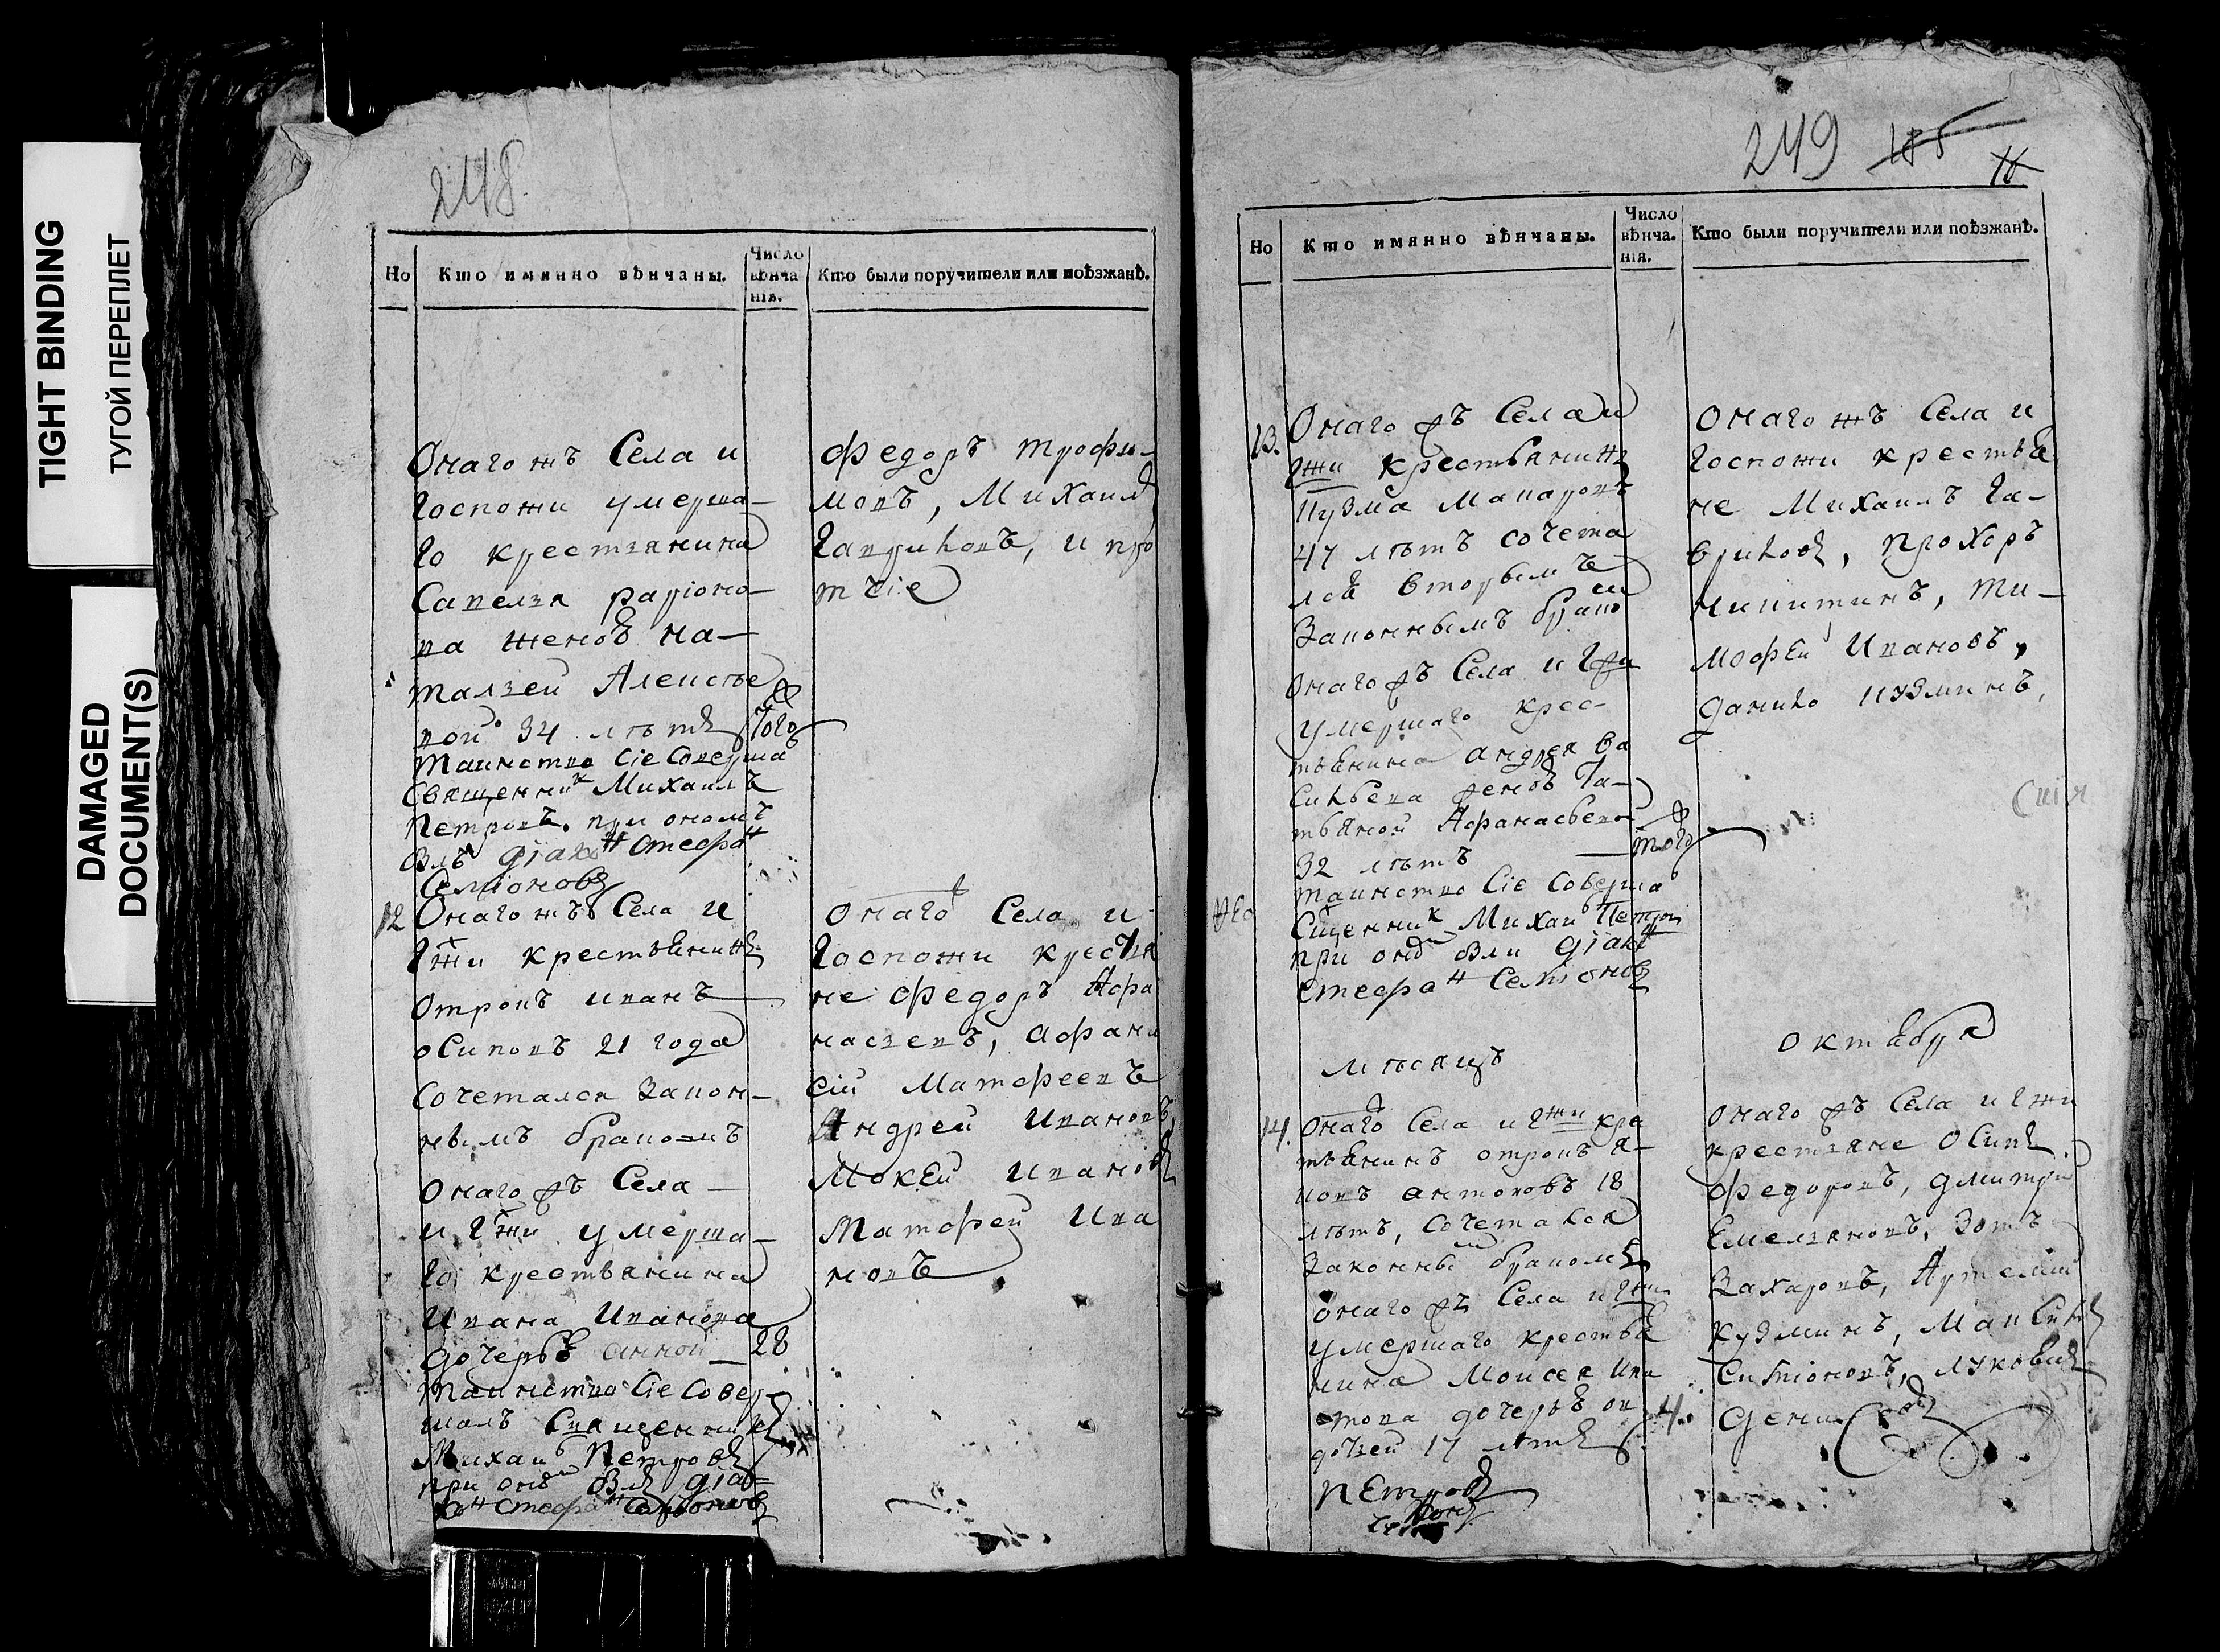 TIGHT BINDING
ТУГОЙ ПЕРЕПЛЕТ
DAMAGED
DOCUMENT(S)
248
Но
Кто имянно вѣнчаны.
Число
вѣнча
нія.
Кто были поручители или поѣзжанѣ.
Онаго жъ Села и
Госпожи умерша-
го крестьянина
Савелья
ва женоѣ На-
тальеи Алексѣе
вои 34 лѣтъ
того
таинство сіе соверша
Священник Михаилъ
Петровъ. при ономъ
былъ діакон Стефан
Семіоновъ
Федоръ Трофи-
мовъ, Михаилъ
Гавриловъ, и про
тчіе
12
Онаго жъ Села и
Гжи крестьянинъ
отрокъ Иванъ
Осиповъ 21 года
Сочетался Закон-
нымъ бракомъ
онаго жъ Села
и Гжи умерша-
го крестьянина
Ивана Иванова
дочерьѣ Анной
28
таинство Сіе Совер-
шалъ Священник
Михаи Петровъ
при оном былъ діа
ко Стефа Семіоновъ
онаго Села и
Госпожи крестья
не Федоръ Афа
насьевъ, Афана
сій Матфеевъ
Андрей Ивановъ,
Мокей Ивановъ
Матфей Ива
новъ
249
185
Но
Кто имянно вѣнчаны.
Число
вѣнча.
нія.
Кто были поручители или поѣзжанѣ.
13.
Онаго жъ Села и
Гжи крестьянинъ
Кузма Макаровъ
47 лѣтъ сочета
лся вторымъ
Законнымъ брако
онаго жъ Села и Гжи
умершаго крес-
тьянина Андрея Ва
сильева женоѣ Та-
тьяной Афанасьево
32 лѣтъ
того
таинство Сіе Соверша
Сщенник Михаи Петров
при оно были діако
Стефан Семіоновъ
Онаго жъ Села и
Госпожи крестья
не Михаилъ Га-
вриловъ, Прохоръ
Никитинъ, Ти-
мофей Ивановъ,
Данило Кузминъ,
мѣсяцъ
октября
14.
Онаго Села и Гжи кре
тьянинъ отрокъ Я-
ковъ Антоновъ 18
лѣтъ, сочетался
Законны бракомъ
онаго жъ Села и Гжи
умершаго крестья
нина Моисея
дочерьѣ
4.
17 лѣтъ
Петровъ
Онаго жъ Села и Гжи
крестьяне Осипъ
Федоровъ, Дмитри
Емельяновъ, Зотъ
Захаровъ, Артемій
Кузминъ, Максимъ